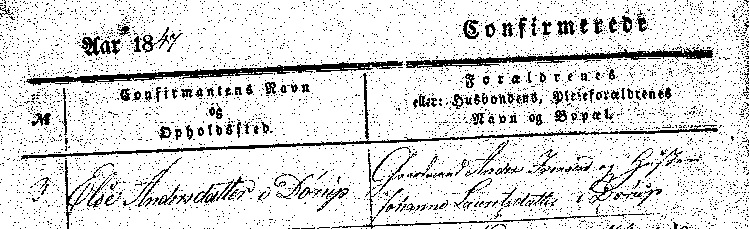 Aar 1847
Confirmerede
№
Confirmantens Navn
og
Opholdssted.
Forældrenes
eller: Husbondens, Pleieforældrenes
Navn og Bopæl.
3
Else Andersdatter i Dórup
Gaardmand Anders Iversen og Hustru
Johanne Lauritsdatter i Dórup